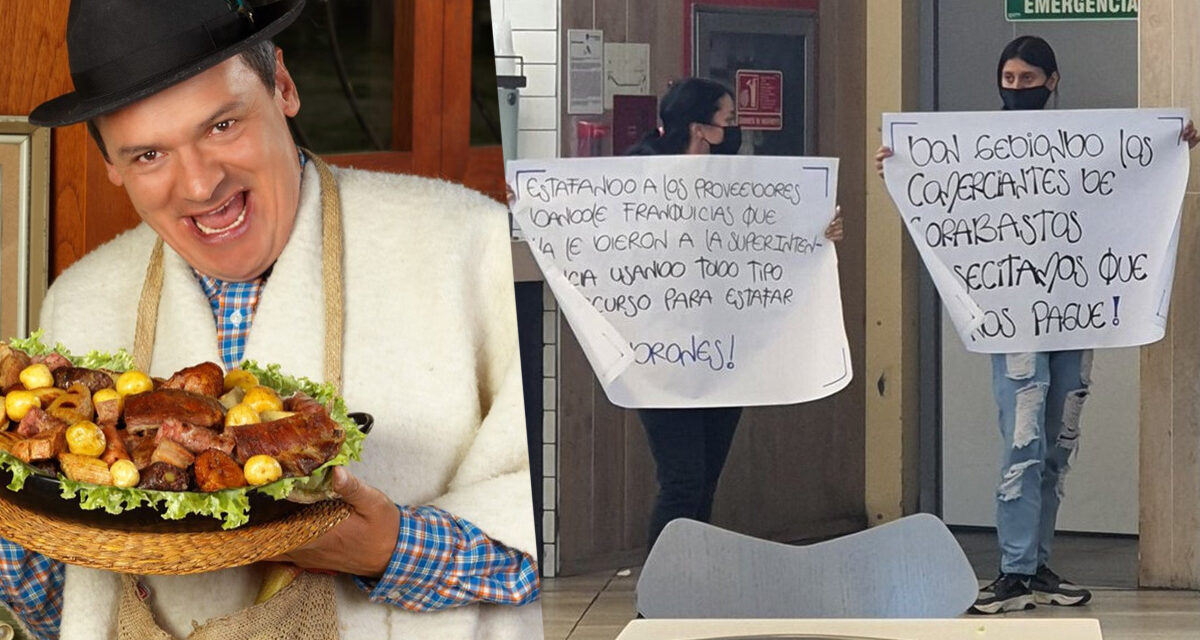 EMERGENCIA
ESTAFANDO A LOS PROVEEDORES
DANDOLE FRANQUICIAS QUE
YA LE DIERON A LA SUPERINTEN-
CIA USANDO TODO TIPO
CURSO PARA ESTAFAR
ORONES!
DON GEDIONDO LOS
COMERCIANTES DE
CORABASTOS
SECITAMOS QUE
NOS PAGUE!